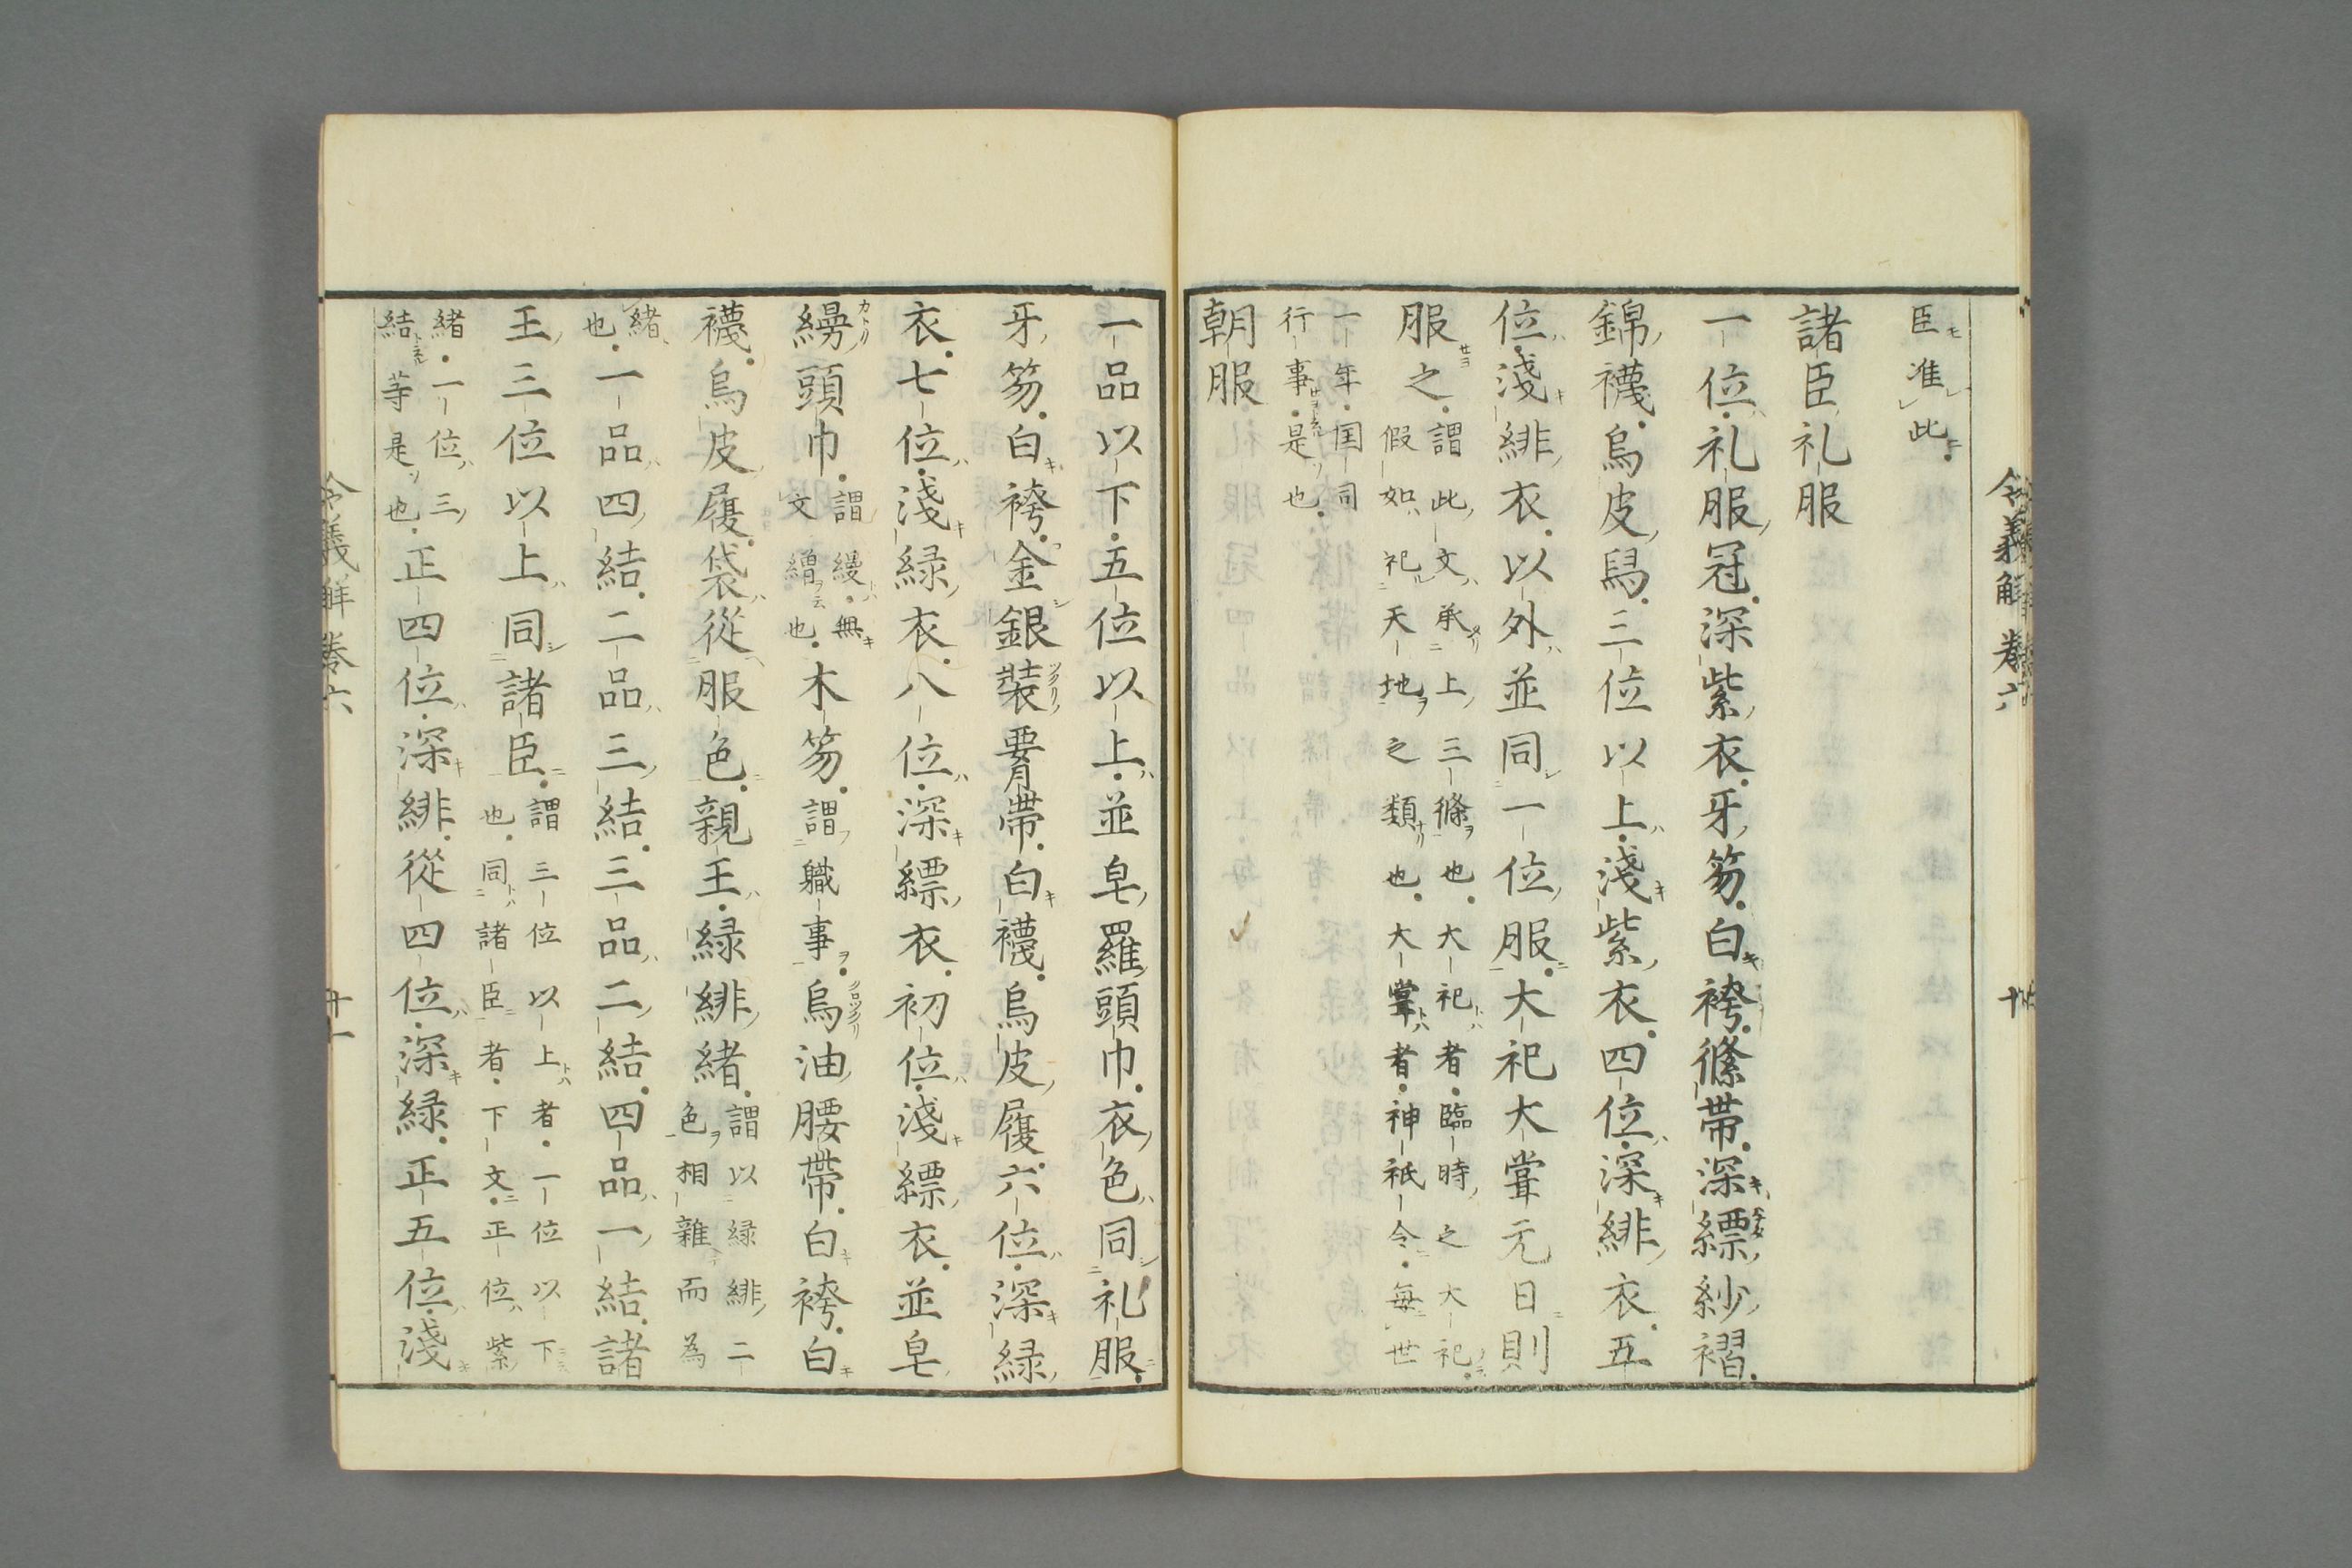 令義解卷六
臣准此
諸臣礼服
一位礼服冠深紫衣牙笏白袴絛帶深縹紗褶
錦襪烏皮舄三位以上淺紫衣四位深緋衣五
位淺緋衣以外並同一位服大祀大甞元日則
服之謂此文承上三條也大祀者臨時之大祀
假如祀天地之類也大甞者神祇令每世
一年国司
行事是也
朝服
一品以下五位以上並皂羅頭巾衣色同礼服
牙笏白袴金銀装𦝫帶白襪烏皮履六位深緑
衣七位淺緑衣八位深縹衣初位淺縹衣並皂
縵頭巾謂縵無
文繒也木笏謂職事烏油腰帶白袴白
襪烏皮履袋從服色親王緑緋緒謂以緑緋二
色相雜而為
緒
也一品四結二品三結三品二結四品一結諸
王三位以上同諸臣謂三位以上者一位以下
也同諸臣者下文正位紫
緒一位三
結等是也正四位深緋從四位深緑正五位淺
令義解卷六
廿一